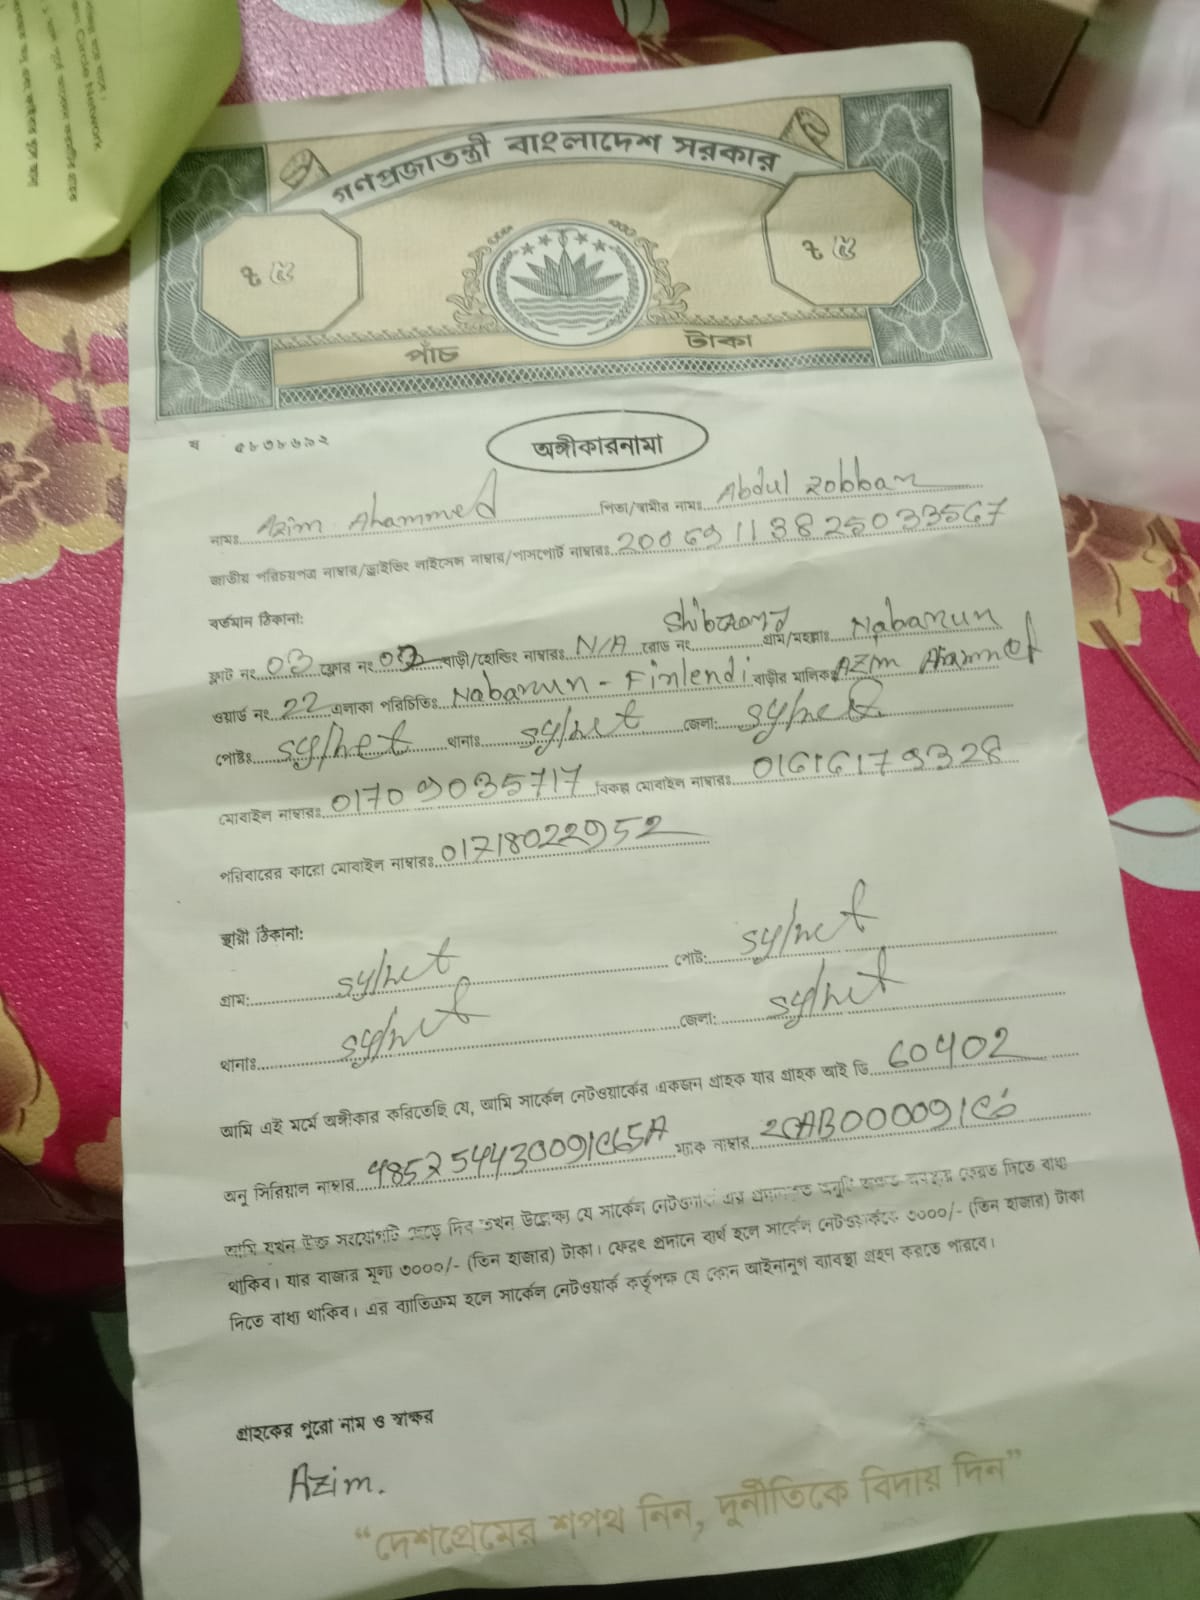 Circle Network
গণপ্রজাতন্ত্রী বাংলাদেশ সরকার
৳ ৫ ৳ ৫
পাঁচ টাকা
অঙ্গীকারনামা
নামঃ Azim Ahammed পিতা/স্বামীর নামঃ Abdul Robban
জাতীয় পরিচয়পত্র নাম্বার/ড্রাইভিং লাইসেন্স নাম্বার/পাসপোর্ট নাম্বারঃ 20069113825033567
বর্তমান ঠিকানা:
ফ্লাট নং 03 ফ্লোর নং 03 বাড়ী/হোল্ডিং নাম্বারঃ N/A রোড নং গ্রাম/মহল্লাঃ Nabarun
ওয়ার্ড নং 22 এলাকা পরিচিতিঃ Nabarun - Finlendi বাড়ীর মালিকঃ Azim Ahammed
পোষ্টঃ sylhet থানাঃ sylhet জেলা: sylhet
মোবাইল নাম্বারঃ 01709035717 বিকল্প মোবাইল নাম্বারঃ 01616179328
পরিবারের কারো মোবাইল নাম্বারঃ 01718022952
স্থায়ী ঠিকানা:
গ্রাম: sylhet পোষ্ট: sylhet
থানাঃ sylhet জেলা: sylhet
আমি এই মর্মে অঙ্গীকার করিতেছি যে, আমি সার্কেল নেটওয়ার্কের একজন গ্রাহক যার গ্রাহক আই ডি 60402
অনু সিরিয়াল নাম্বার ম্যাক নাম্বার
আমি যখন উক্ত সংযোগটি ছেড়ে দিব তখন উল্লেখ্য যে সার্কেল নেটওয়ার্ক এর ফেরত দিতে বাধ্য
থাকিব। যার বাজার মূল্য ৩০০০/- (তিন হাজার) টাকা। ফেরৎ প্রদানে ব্যর্থ হলে সার্কেল নেটওয়ার্ককে ৩০০০/- (তিন হাজার) টাকা
দিতে বাধ্য থাকিব। এর ব্যতিক্রম হলে সার্কেল নেটওয়ার্ক কর্তৃপক্ষ যে কোন আইনানুগ ব্যাবস্থা গ্রহণ করতে পারবে।
গ্রাহকের পুরো নাম ও স্বাক্ষর
Azim.
“দেশপ্রেমের শপথ নিন, দুর্নীতিকে বিদায় দিন”